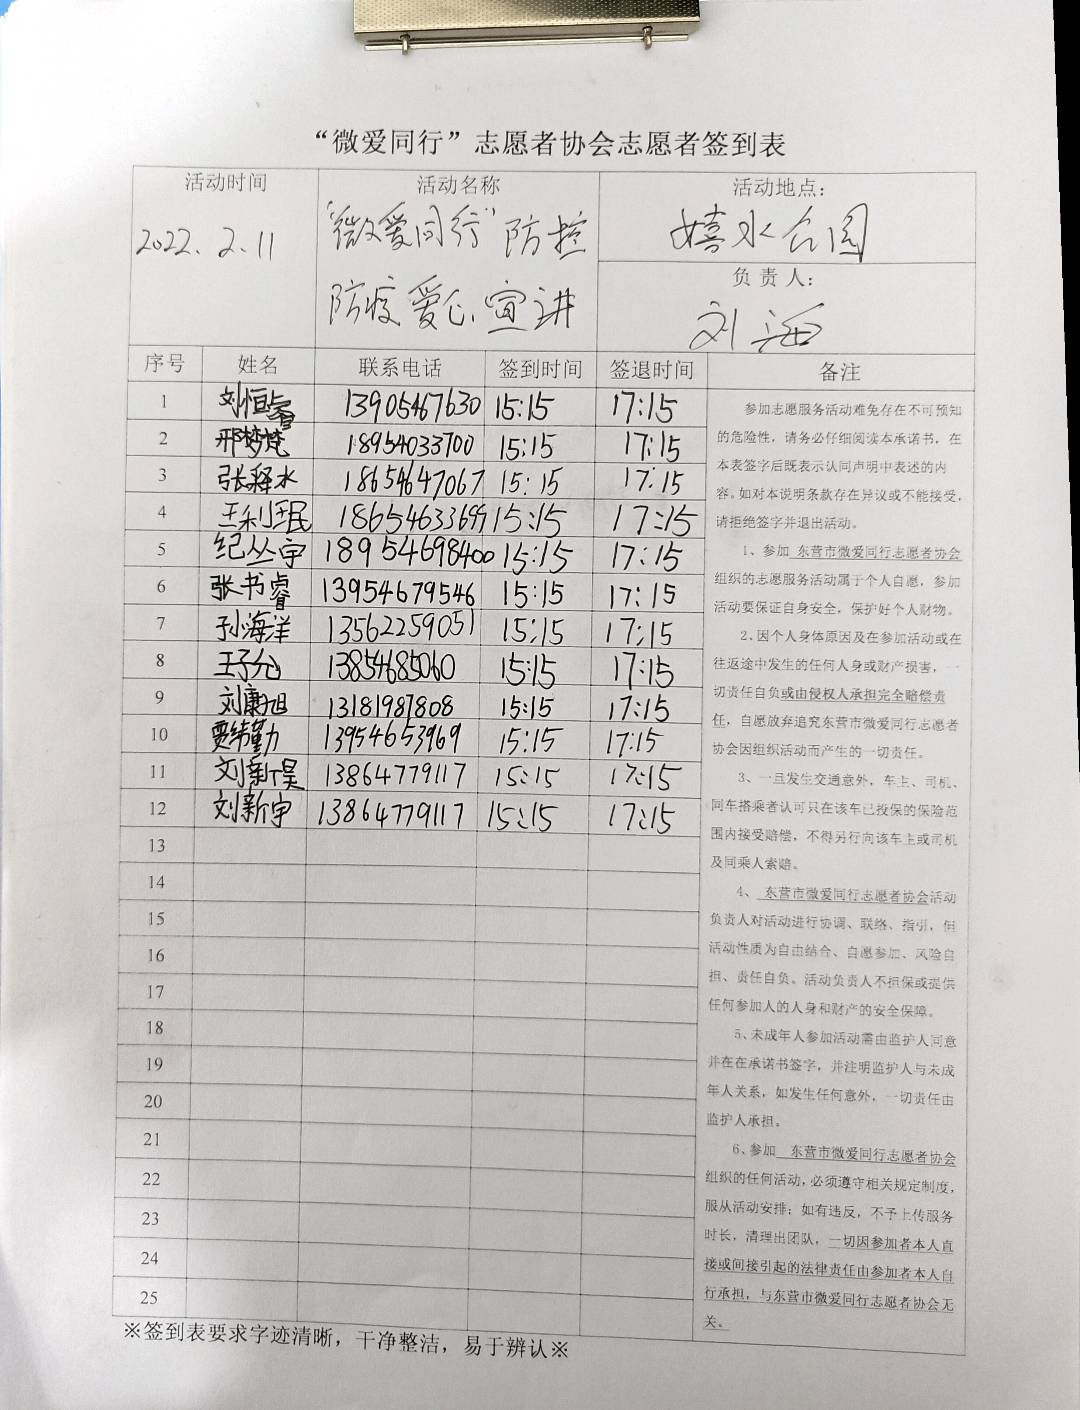 “微爱同行”志愿者协会志愿者签到表
活动时间 活动名称 活动地点：
2022.2.11 “微爱同行”防控 嬉水公园
防疫爱心宣讲
负责人：
刘海
序号 姓名 联系电话 签到时间 签退时间 备注
1 刘恒睿 13905467630 15:15 17:15
2 邢梦梵 18954033700 15:15 17:15
3 张释水 18654647067 15:15 17:15
4 王利珉 18654633699 15:15 17:15
5 纪丛宇 18954698400 15:15 17:15
6 张书睿 13954679546 15:15 17:15
7 孙海洋 13562259051 15:15 17:15
8 王子允 13854685060 15:15 17:15
9 刘康旭 13181987808 15:15 17:15
10 贾纬勤 13954653969 15:15 17:15
11 刘新昊 13864779117 15:15 17:15
12 刘新宇 13864779117 15:15 17:15
13
14
15
16
17
18
19
20
21
22
23
24
25
参加志愿服务活动难免存在不可预知
的危险性，请务必仔细阅读本承诺书，在
本表签字后既表示认同声明中表述的内
容。如对本说明条款存在异议或不能接受，
请拒绝签字并退出活动。
1、参加 东营市微爱同行志愿者协会
组织的志愿服务活动属于个人自愿，参加
活动要保证自身安全，保护好个人财物。
2、因个人身体原因及在参加活动或在
往返途中发生的任何人身或财产损害，一
切责任自负或由侵权人承担完全赔偿责
任，自愿放弃追究东营市微爱同行志愿者
协会因组织活动而产生的一切责任。
3、一旦发生交通意外，车主、司机、
同车搭乘者认可只在该车已投保的保险范
围内接受赔偿，不得另行向该车主或司机
及同乘人索赔。
4、 东营市微爱同行志愿者协会活动
负责人对活动进行协调、联络、指引，但
活动性质为自由结合、自愿参加、风险自
担、责任自负。活动负责人不担保或提供
任何参加人的人身和财产的安全保障。
5、未成年人参加活动需由监护人同意
并在在承诺书签字，并注明监护人与未成
年人关系，如发生任何意外，一切责任由
监护人承担。
6、参加 东营市微爱同行志愿者协会
组织的任何活动，必须遵守相关规定制度，
服从活动安排；如有违反，不予上传服务
时长，清理出团队，一切因参加者本人直
接或间接引起的法律责任由参加者本人自
行承担，与东营市微爱同行志愿者协会无
关。
※签到表要求字迹清晰，干净整洁，易于辨认※